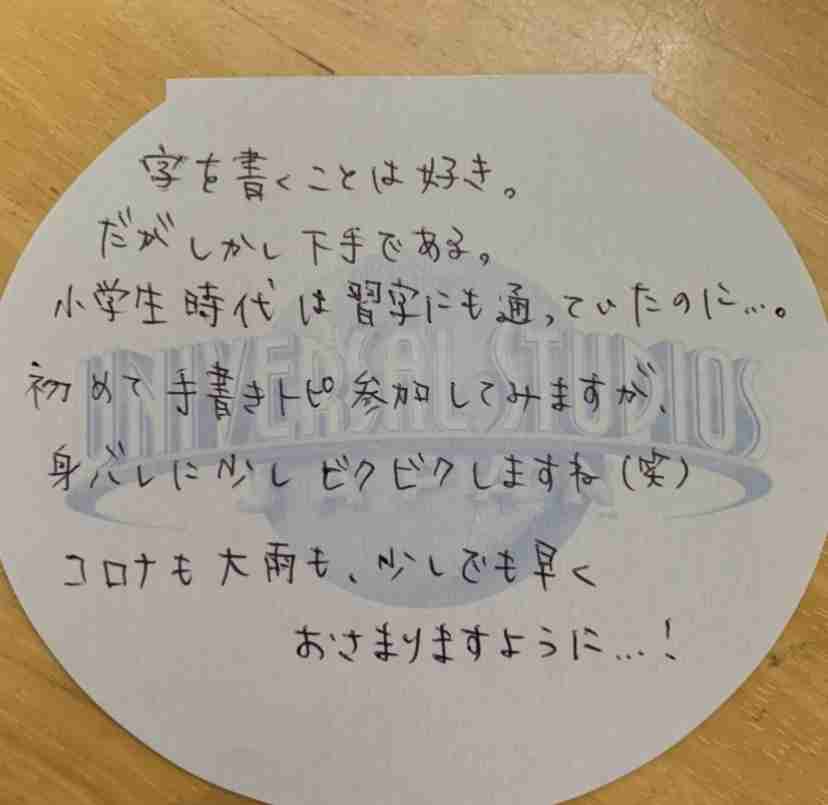 字を書くことは好き。
だがしかし下手である。
小学生時代は習字にも通っていたのに…。
初めて手書きトピ参加してみますが、
身バレに少しビクビクしますね(笑)
コロナも大雨も、少しでも早く
おさまりますように…!
UNIVERSAL STUDIOS
JAPAN